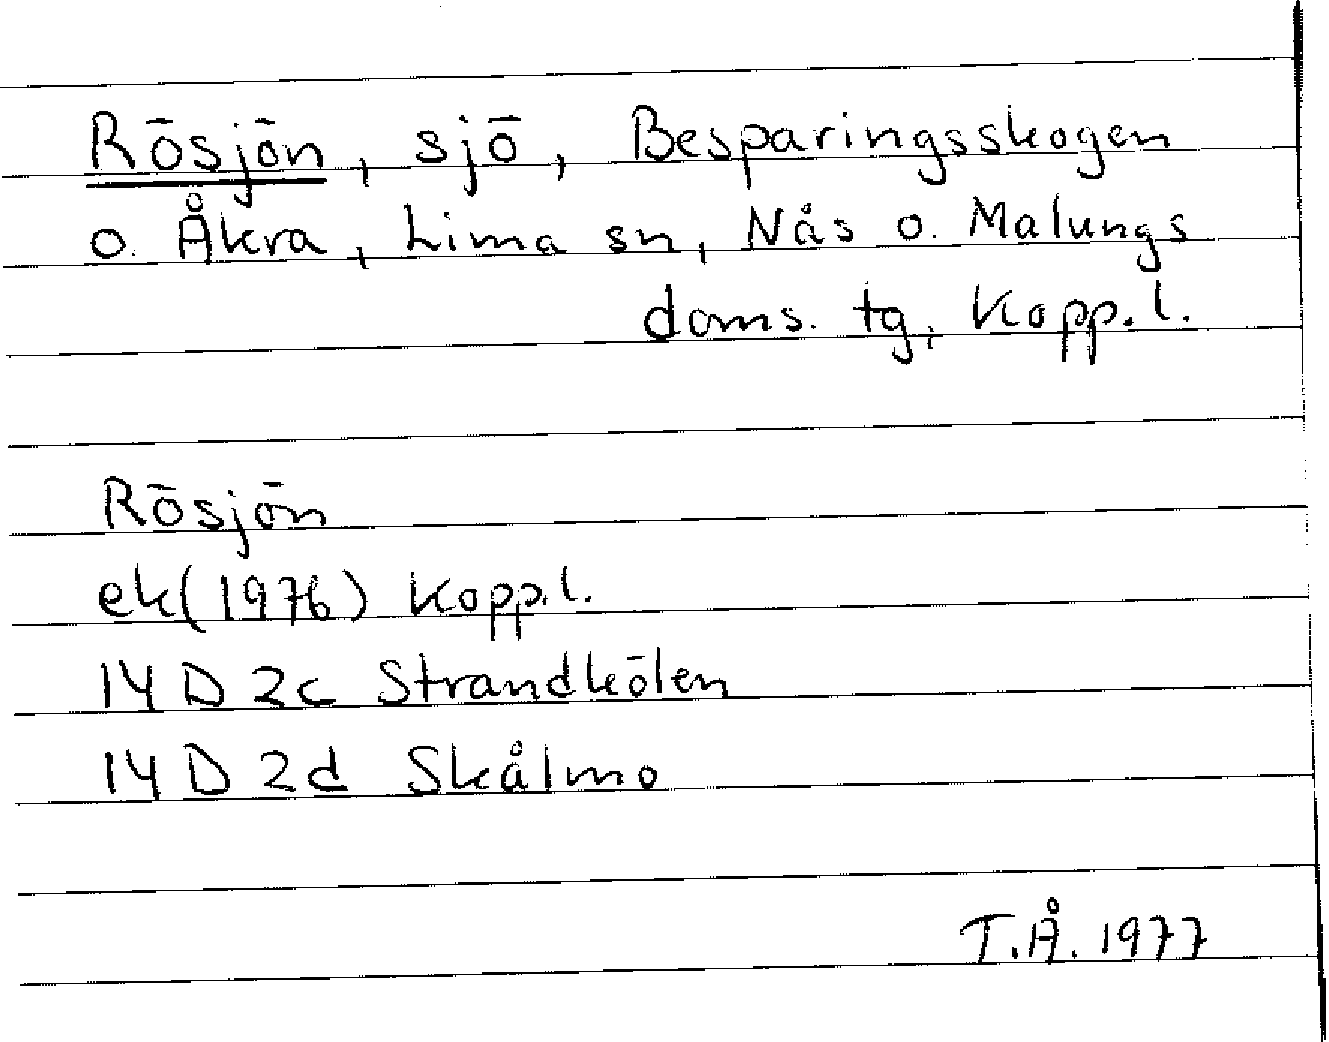 Rösjön, sjö, Besparingsskogen
o. Åkra, Lima sn, Nås o. Malungs
doms. tg, Kopp. l.
Rösjön
ek(1976) Kopp.l.
14 D 2c Strandkölen
14 D 2d Skålmo
T.Å. 1977